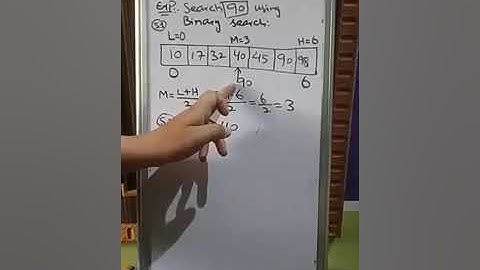 Exp:. Search 90 using
S1 Binary search.
L=0 M=3 H=6
10 17 32 40 45 90 98
0 6
↑
90
M = L+H = 6 = 6/2 = 3
2 2
40